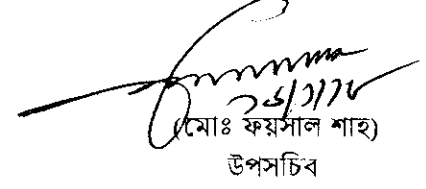 (মোঃ ফয়সাল শাহ)
উপসচিব